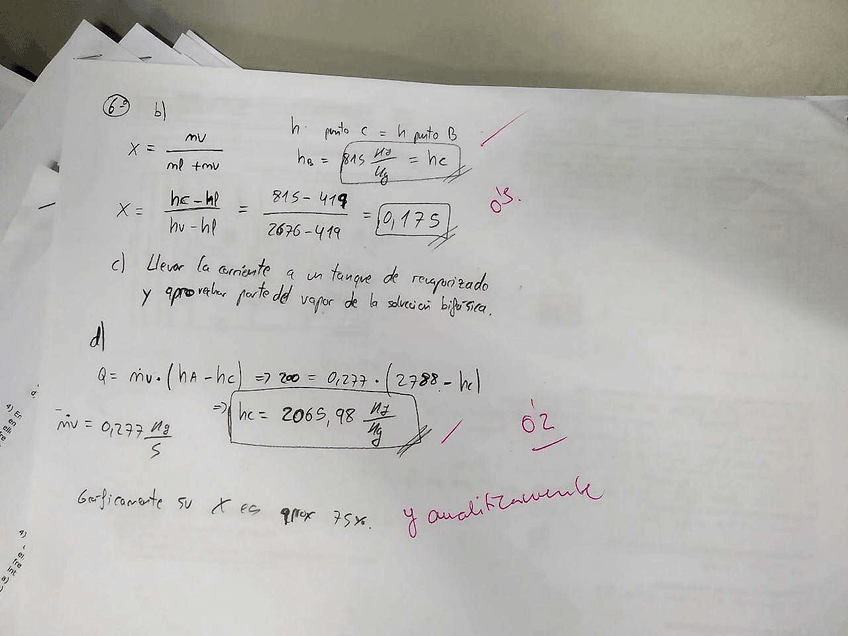 6º b)
X = mv / (ml + mv)
h punto C = h punto B
hB = 815 KJ/Kg = hc
X = (hc - hl) / (hv - hl) = (815 - 419) / (2676 - 419) = 0,175
0'5.
c) Llevar la corriente a un tanque de revaporizado
y aprovechar parte del vapor de la solución bifásica.
d)
Q = ṁv · (hA - hc) => 200 = 0,277 · (2788 - hc)
=> hc = 2065,98 KJ/Kg
0'2
ṁv = 0,277 Kg/s
Gráficamente su X es aprox 75%.
y analíticamente
4)
4)
a)